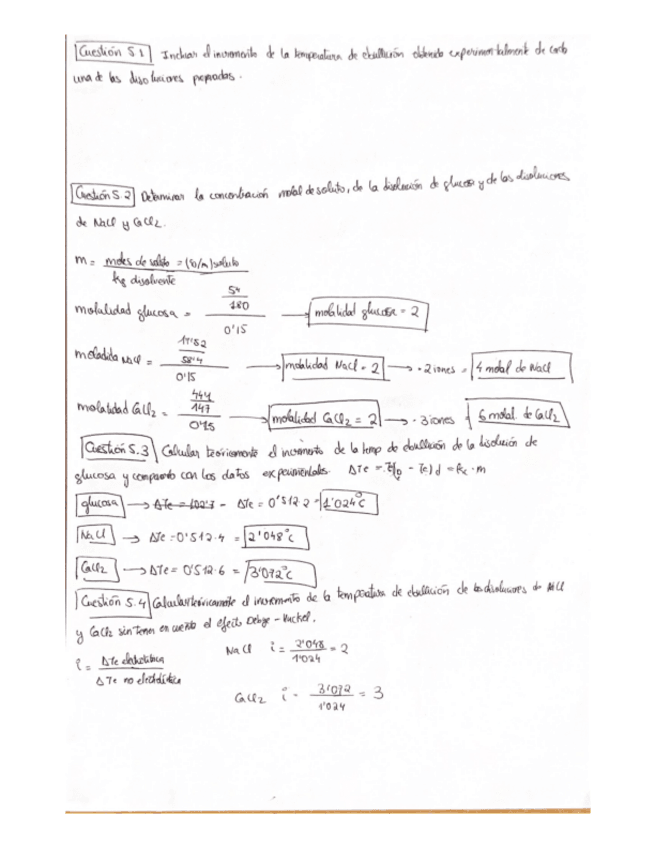 Cuestión 5.1 Incluir el incremento de la temperatura de ebullición obtenido experimentalmente de cada
una de las disoluciones preparadas.
Cuestión 5.2 Determinar la concentración molal de soluto, de la disolución de glucosa y de las disoluciones
de NaCl y CaCl2.
m = moles de soluto / kg disolvente = (so/m) soluto
molalidad glucosa = 54/180 / 0'15 → molalidad glucosa = 2
NaCl = 17'52/58'4 / 0'15 → molalidad NaCl = 2 → · 2 iones = 4 molal de NaCl
molalidad CaCl2 = 444/147 / 0'15 → molalidad CaCl2 = 2 → · 3 iones 6 molal de CaCl2
Cuestión 5.3 Calcular teóricamente el incremento de la temp de ebullición de la disolución de
glucosa y compararlo con los datos experimentales. ΔTe = - Te)d = · m
glucosa → - ΔTe = 0'512·2 = 1'024°C
NaCl → ΔTe = 0'512·4 = 2'048°C
CaCl2 → ΔTe = 0'512·6 = 3'072°C
Cuestión 5.4 Calcular teóricamente el incremento de la temperatura de ebullición de las disoluciones de NaCl
y CaCl2 sin tener en cuenta el efecto Debye-Huckel.
i = ΔTe electrolítica / ΔTe no electrolítica
NaCl i = 2'048 / 1'024 = 2
CaCl2 i = 3'072 / 1'024 = 3